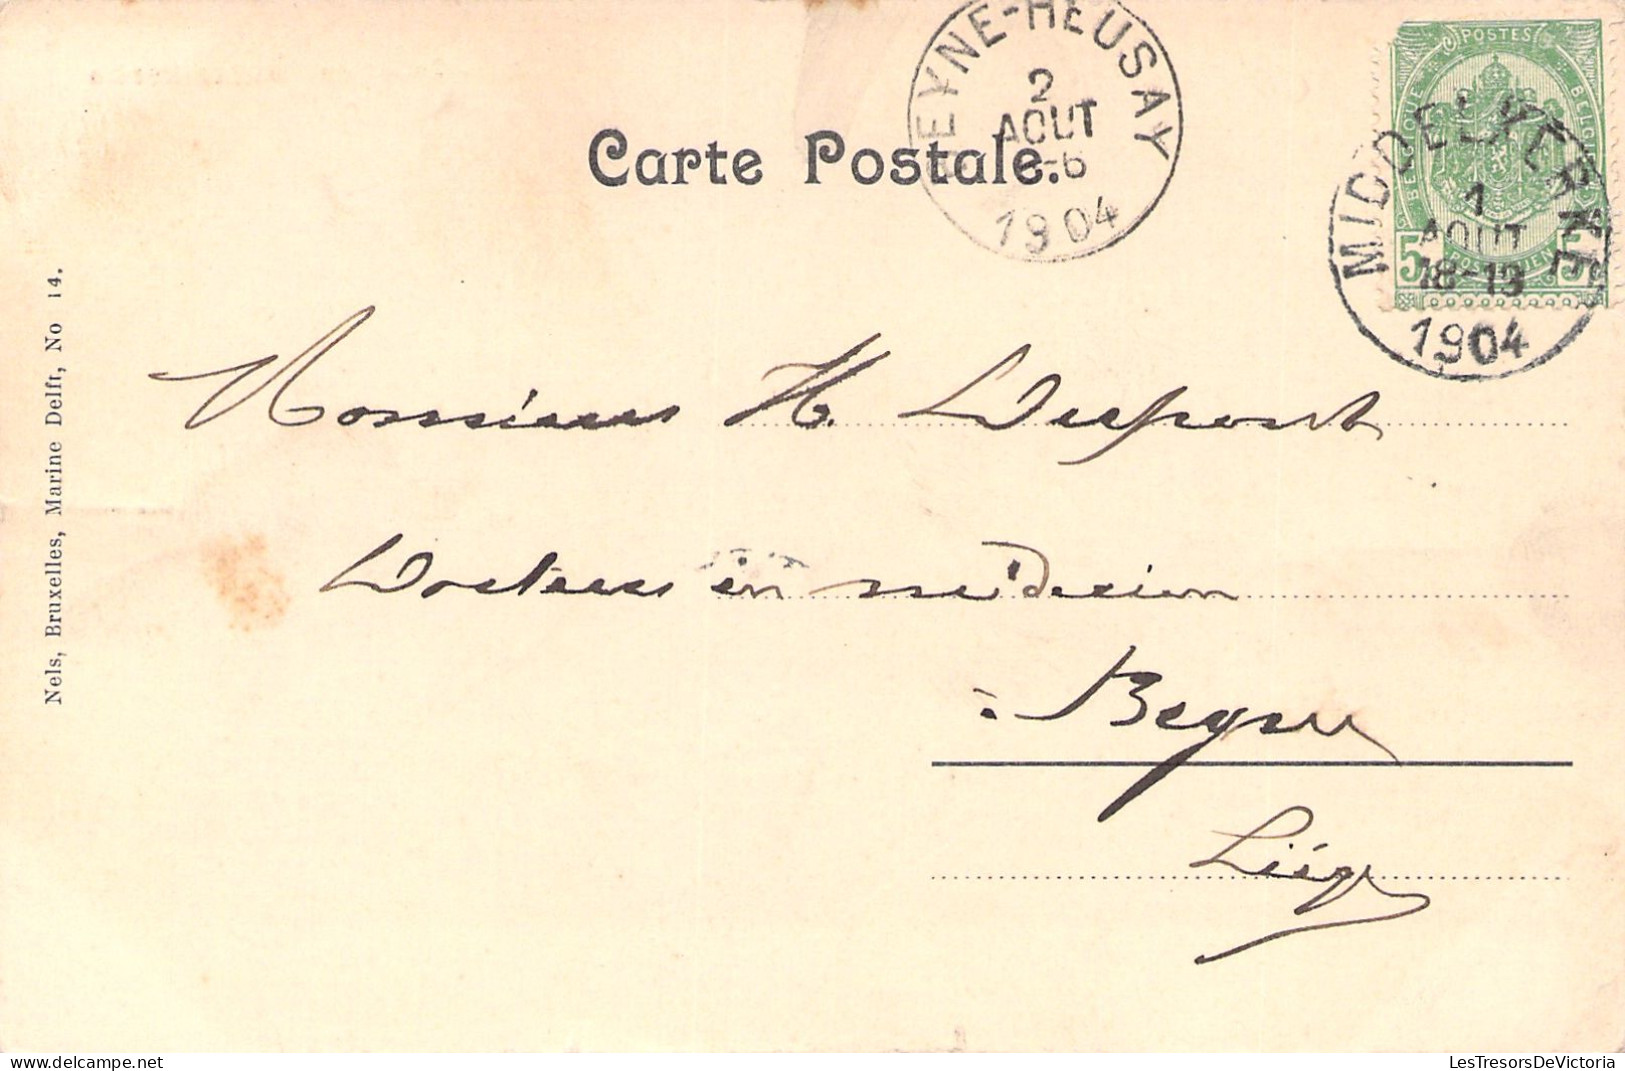 BEYNE-HEUSAY
2
AOUT
-6
1904
POSTES
BELGIQUE BELGIË
5 POSTERIJEN 5
MIDDELKERKE
1
AOUT
18-19
1904
Carte Postale.
Nels, Bruxelles, Marine Delft, No 14.
Monsieur H. Dupont
Docteur en médecine
à Beyne
Liége
LesTresorsDeVictoria